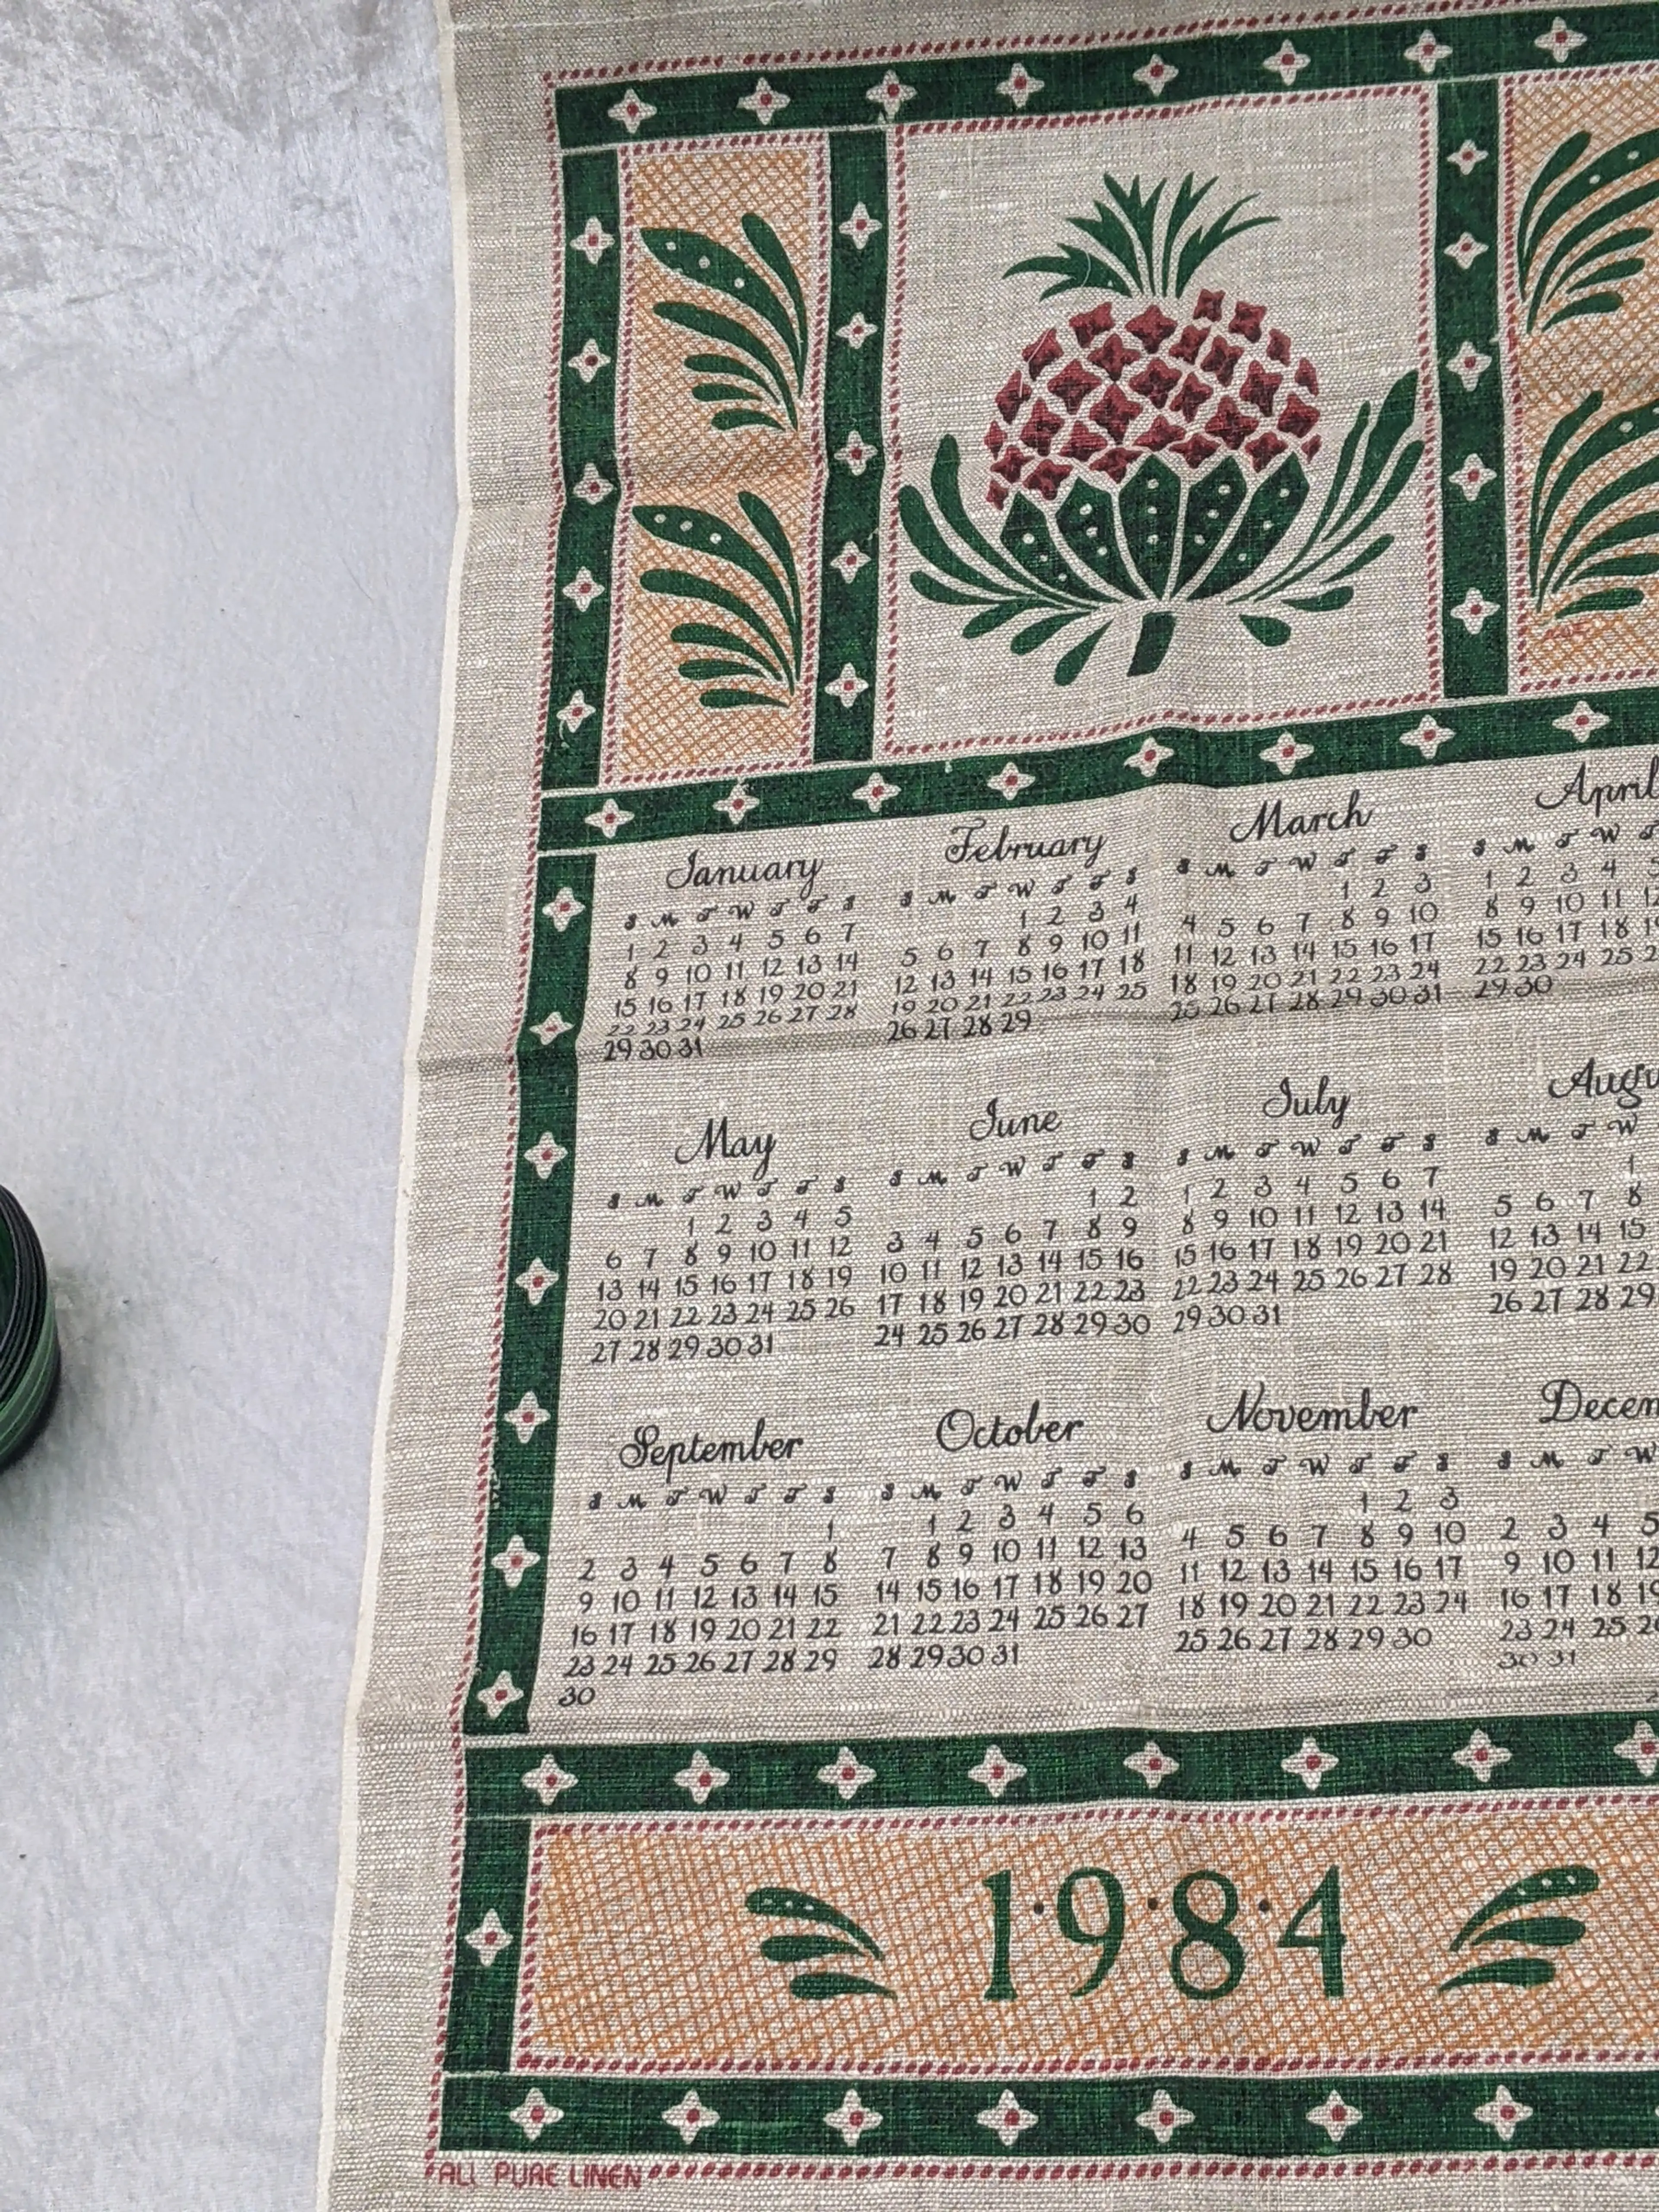 January
S M T W T F S
1 2 3 4 5 6 7
8 9 10 11 12 13 14
15 16 17 18 19 20 21
22 23 24 25 26 27 28
29 30 31
February
S M T W T F S
1 2 3 4
5 6 7 8 9 10 11
12 13 14 15 16 17 18
19 20 21 22 23 24 25
26 27 28 29
March
S M T W T F S
1 2 3
4 5 6 7 8 9 10
11 12 13 14 15 16 17
18 19 20 21 22 23 24
25 26 27 28 29 30 31
April
S M T W T
1 2 3 4
8 9 10 11
15 16 17 18
22 23 24 25
29 30
May
S M T W T F S
1 2 3 4 5
6 7 8 9 10 11 12
13 14 15 16 17 18 19
20 21 22 23 24 25 26
27 28 29 30 31
June
S M T W T F S
1 2
3 4 5 6 7 8 9
10 11 12 13 14 15 16
17 18 19 20 21 22 23
24 25 26 27 28 29 30
July
S M T W T F S
1 2 3 4 5 6 7
8 9 10 11 12 13 14
15 16 17 18 19 20 21
22 23 24 25 26 27 28
29 30 31
Augu
S M T W
1
5 6 7 8
12 13 14 15
19 20 21 22
26 27 28 29
September
S M T W T F S
1
2 3 4 5 6 7 8
9 10 11 12 13 14 15
16 17 18 19 20 21 22
23 24 25 26 27 28 29
30
October
S M T W T F S
1 2 3 4 5 6
7 8 9 10 11 12 13
14 15 16 17 18 19 20
21 22 23 24 25 26 27
28 29 30 31
November
S M T W T F S
1 2 3
4 5 6 7 8 9 10
11 12 13 14 15 16 17
18 19 20 21 22 23 24
25 26 27 28 29 30
Decem
S M T W
2 3 4 5
9 10 11 12
16 17 18 19
23 24 25
30 31
1·9·8·4
ALL PURE LINEN